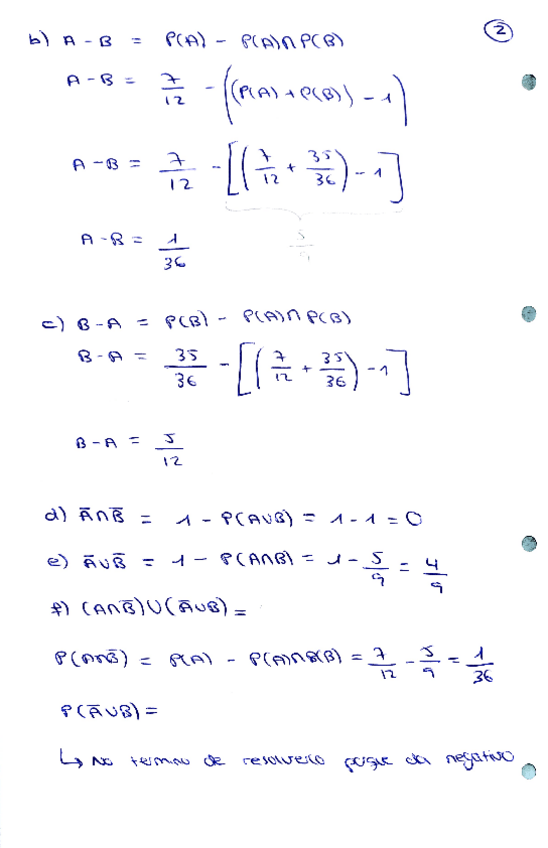 ②
b) A - B = P(A) - P(A)∩P(B)
A - B = 7/12 - ((P(A) + P(B)) - 1)
A - B = 7/12 - [(7/12 + 35/36) - 1]
5/9
A - B = 1/36
c) B - A = P(B) - P(A)∩P(B)
B - A = 35/36 - [(7/12 + 35/36) - 1]
B - A = 5/12
d) A̅∩B̅ = 1 - P(A∪B) = 1 - 1 = 0
e) A̅∪B̅ = 1 - P(A∩B) = 1 - 5/9 = 4/9
f) (A∩B̅)∪(A̅∪B) =
P(A∩B̅) = P(A) - P(A)∩P(B) = 7/12 - 5/9 = 1/36
P(A̅∪B) =
↳ No termino de resolverlo porque da negativo